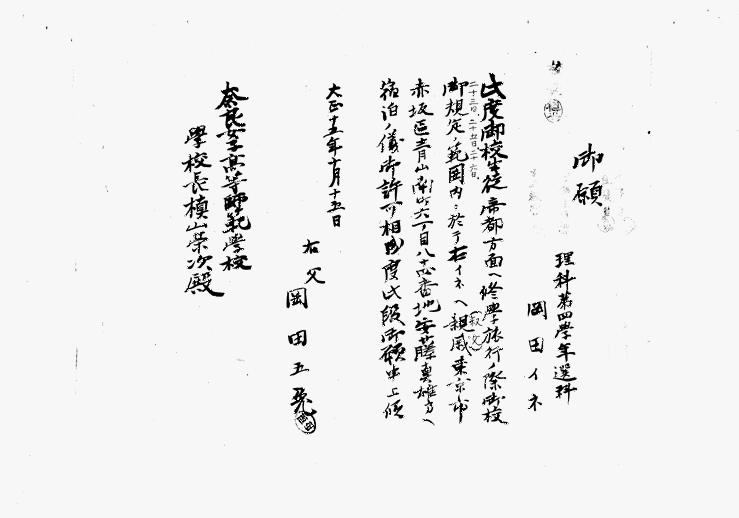 御願
理科第四學年選科
岡田イネ
此度御校生徒帝都方面ヘ修學旅行ノ際御校
二十三日、二十五日、二十六日、
御規定ノ範囲内ニ於テ右イネヘ親戚東京市
(叔父)
赤坂區青山南町六丁目八十四番地安藤真雄方ヘ
宿泊ノ儀御許可相成度此段御願申上候
大正十五年十月十五日
右父
岡田五
奈良女子高等師範學校
學校長槙山榮次殿